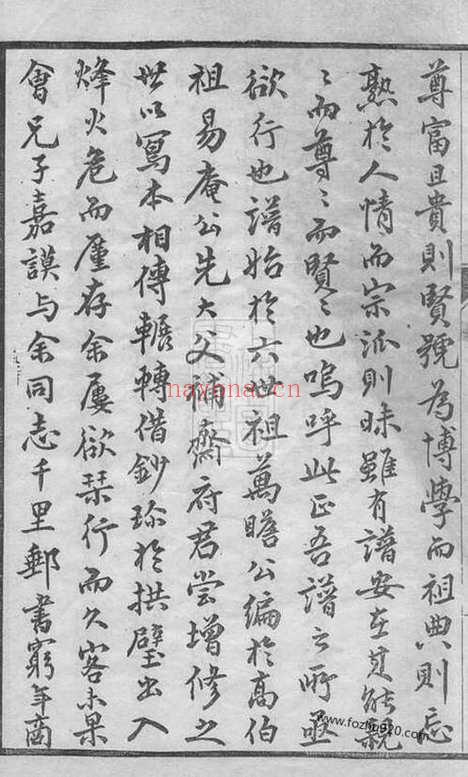 尊富且貴則賢號為博學而祖典則忘
熟於人情而宗派則昧雖有譜安在其能親
〻而尊〻而賢〻也嗚呼此正吾譜之所亟
欲行也譜始於六世祖萬瞻公編於高伯
祖易庵公先大父補齋府君嘗增修之
世以寫本相傳輾轉借鈔珍於拱璧出入
烽火危而厪存余屢欲栞行而久客未果
會兄子嘉謨与余同志千里郵書窮年商
nayona.cn
www.fozhu920.com